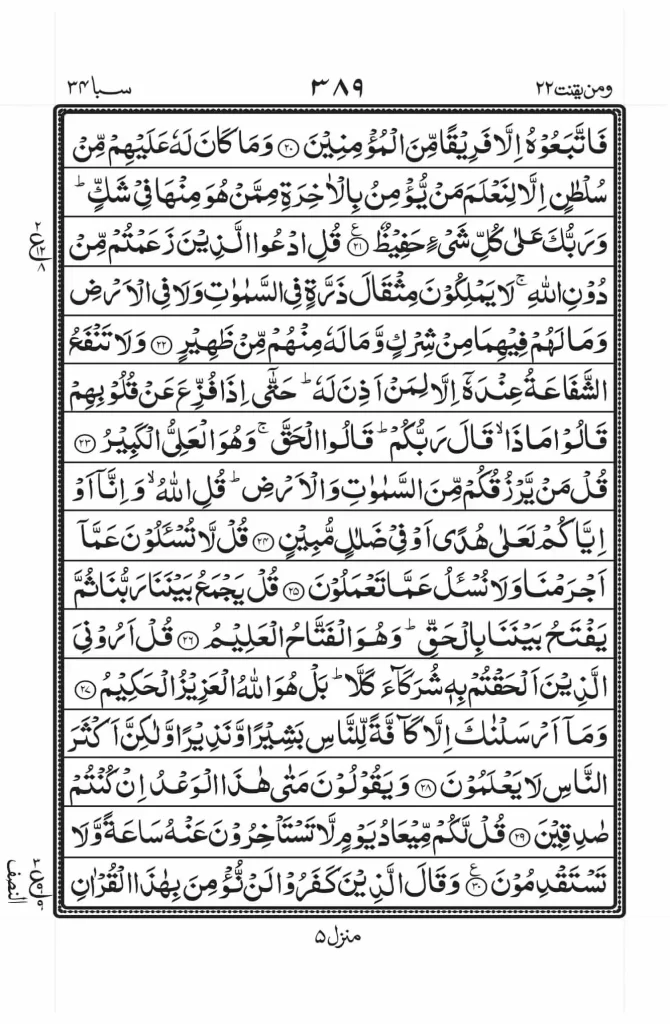 ومن يقنت ٢٢
٣٨٩
سبا ٣٤
فَاتَّبَعُوْهُ اِلَّا فَرِيْقًا مِّنَ الْمُؤْمِنِيْنَ ﴿٢٠﴾ وَمَا كَانَ لَهٗ عَلَيْهِمْ مِّنْ
سُلْطٰنٍ اِلَّا لِنَعْلَمَ مَنْ يُّؤْمِنُ بِالْاٰخِرَةِ مِمَّنْ هُوَ مِنْهَا فِيْ شَكٍّ ؕ
وَرَبُّكَ عَلٰى كُلِّ شَيْءٍ حَفِيْظٌ ﴿٢١﴾ ع قُلِ ادْعُوا الَّذِيْنَ زَعَمْتُمْ مِّنْ
دُوْنِ اللّٰهِ ۚ لَا يَمْلِكُوْنَ مِثْقَالَ ذَرَّةٍ فِي السَّمٰوٰتِ وَلَا فِي الْاَرْضِ
وَمَا لَهُمْ فِيْهِمَا مِنْ شِرْكٍ وَّمَا لَهٗ مِنْهُمْ مِّنْ ظَهِيْرٍ ﴿٢٢﴾ وَلَا تَنْفَعُ
الشَّفَاعَةُ عِنْدَهٗٓ اِلَّا لِمَنْ اَذِنَ لَهٗ ؕ حَتّٰٓى اِذَا فُزِّعَ عَنْ قُلُوْبِهِمْ
قَالُوْا مَاذَا ۙ قَالَ رَبُّكُمْ ؕ قَالُوا الْحَقَّ ۚ وَهُوَ الْعَلِيُّ الْكَبِيْرُ ﴿٢٣﴾
قُلْ مَنْ يَّرْزُقُكُمْ مِّنَ السَّمٰوٰتِ وَالْاَرْضِ ؕ قُلِ اللّٰهُ ۙ وَاِنَّآ اَوْ
اِيَّاكُمْ لَعَلٰى هُدًى اَوْ فِيْ ضَلٰلٍ مُّبِيْنٍ ﴿٢٤﴾ قُلْ لَّا تُسْـَٔلُوْنَ عَمَّآ
اَجْرَمْنَا وَلَا نُسْـَٔلُ عَمَّا تَعْمَلُوْنَ ﴿٢٥﴾ قُلْ يَجْمَعُ بَيْنَنَا رَبُّنَا ثُمَّ
يَفْتَحُ بَيْنَنَا بِالْحَقِّ ؕ وَهُوَ الْفَتَّاحُ الْعَلِيْمُ ﴿٢٦﴾ قُلْ اَرُوْنِيَ
الَّذِيْنَ اَلْحَقْتُمْ بِهٖ شُرَكَآءَ كَلَّا ؕ بَلْ هُوَ اللّٰهُ الْعَزِيْزُ الْحَكِيْمُ ﴿٢٧﴾
وَمَآ اَرْسَلْنٰكَ اِلَّا كَآفَّةً لِّلنَّاسِ بَشِيْرًا وَّنَذِيْرًا وَّلٰكِنَّ اَكْثَرَ
النَّاسِ لَا يَعْلَمُوْنَ ﴿٢٨﴾ وَيَقُوْلُوْنَ مَتٰى هٰذَا الْوَعْدُ اِنْ كُنْتُمْ
صٰدِقِيْنَ ﴿٢٩﴾ قُلْ لَّكُمْ مِّيْعَادُ يَوْمٍ لَّا تَسْتَاْخِرُوْنَ عَنْهُ سَاعَةً وَّلَا
تَسْتَقْدِمُوْنَ ﴿٣٠﴾ ع وَقَالَ الَّذِيْنَ كَفَرُوْا لَنْ نُّؤْمِنَ بِهٰذَا الْقُرْاٰنِ
٢ ع ١٢ ٨
النصف
منزل ٥